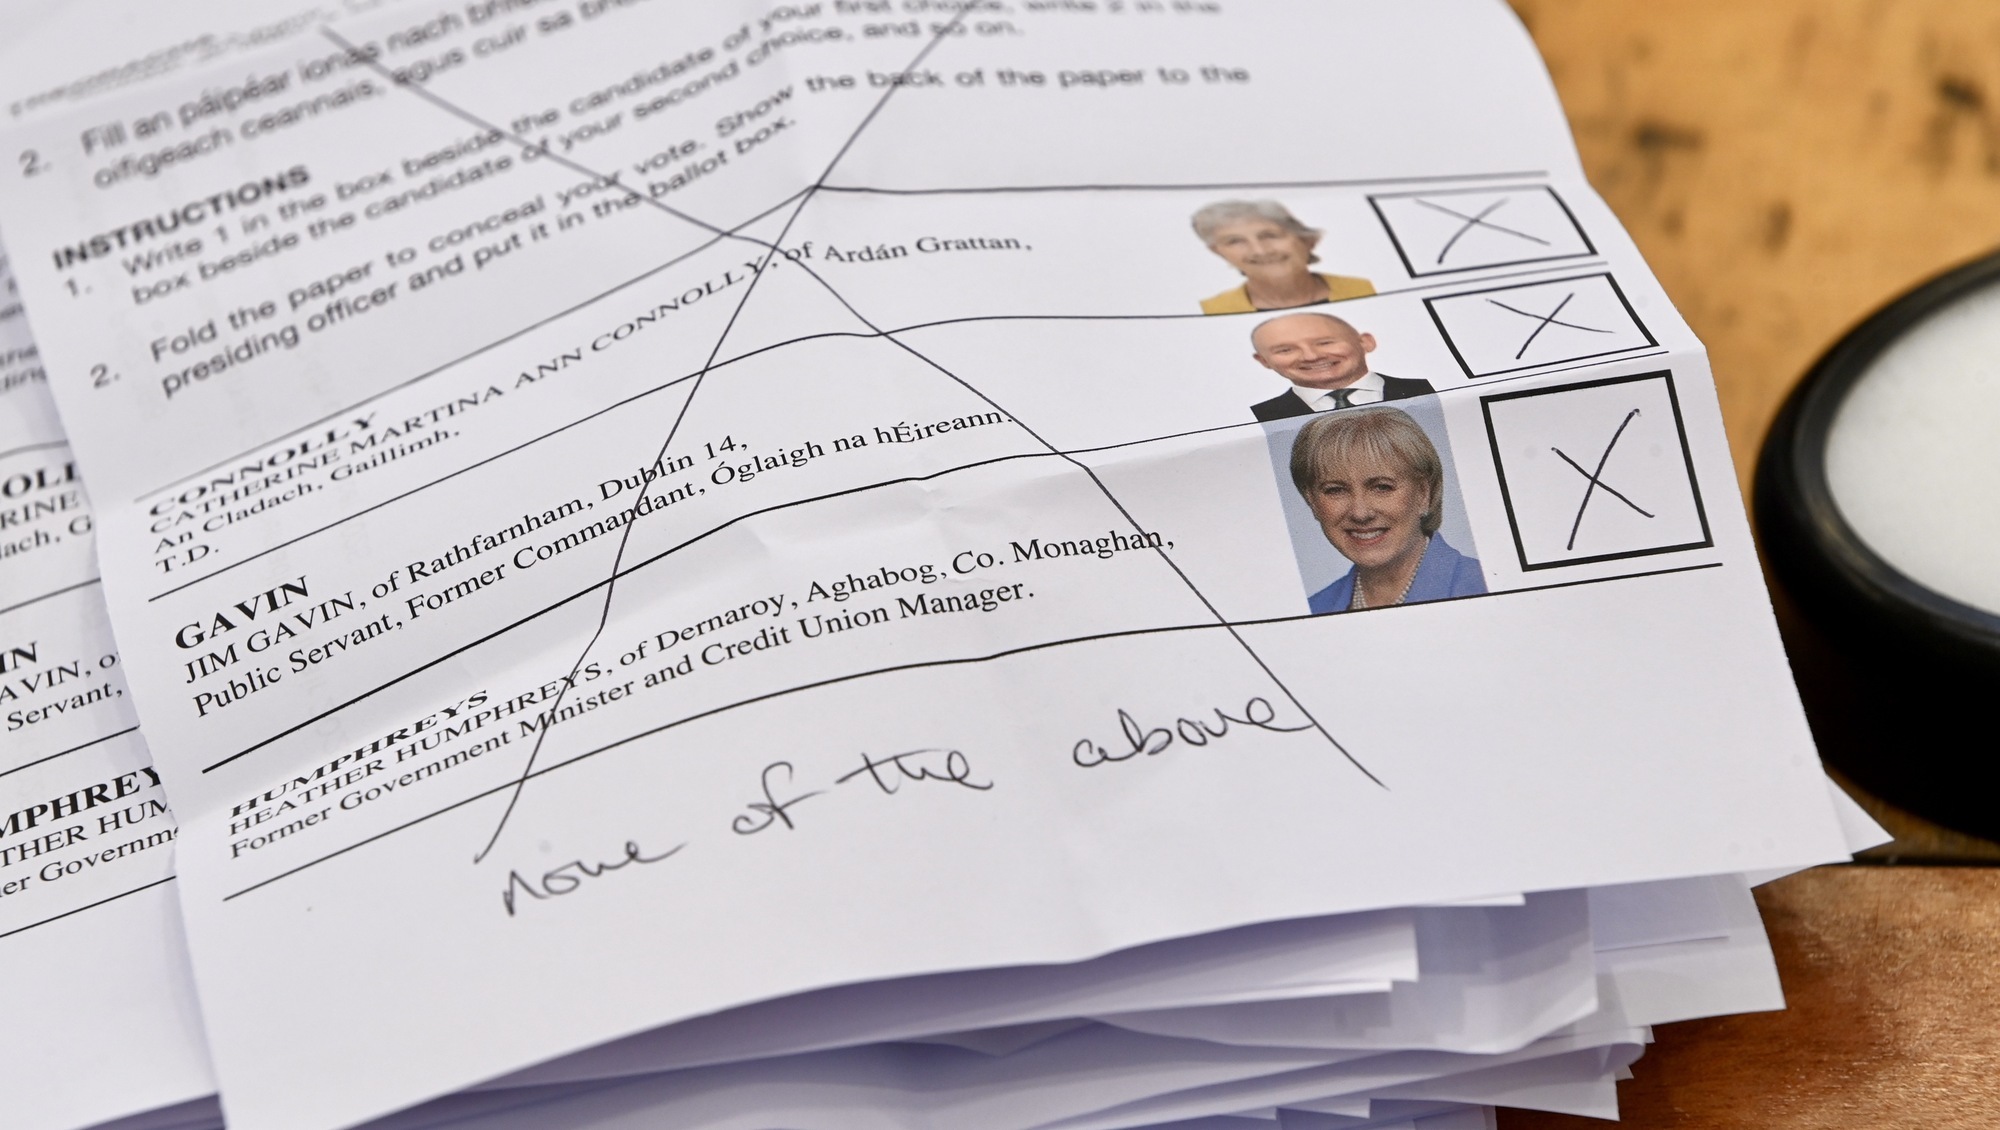 2. Fill an páipéar ionas nach
oifigeach ceannais, agus cuir sa
INSTRUCTIONS
1. Write 1 in the box beside the candidate of your first choice, write 2 in the
box beside the candidate of your second choice, and so on.
2. Fold the paper to conceal your vote. Show the back of the paper to the
presiding officer and put it in the ballot box.
CONNOLLY
CATHERINE MARTINA ANN CONNOLLY, of Ardán Grattan,
An Cladach, Gaillimh.
T.D.
X
GAVIN
JIM GAVIN, of Rathfarnham, Dublin 14,
Public Servant, Former Commandant, Óglaigh na hÉireann.
X
HUMPHREYS
HEATHER HUMPHREYS, of Dernaroy, Aghabog, Co. Monaghan,
Former Government Minister and Credit Union Manager.
X
none of the above